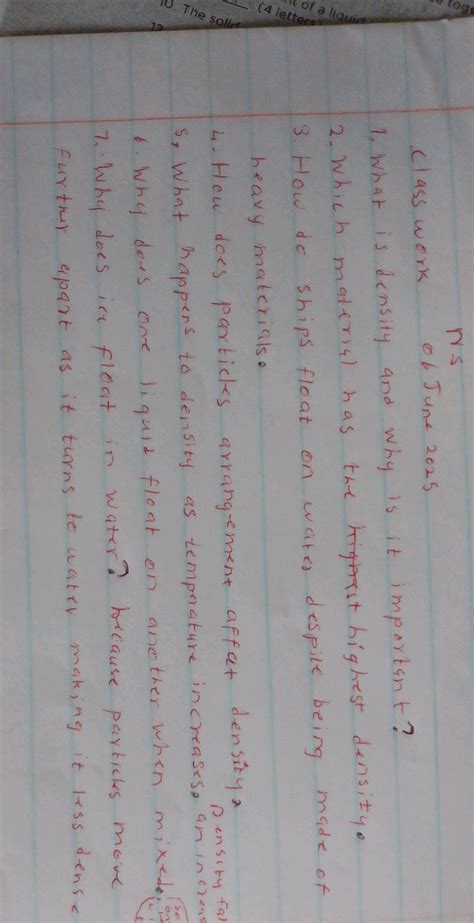 nt of a liquid
(4 letters
10. The solid
12
NS
Class work 06 June 2025
1. What is density and why is it important?
2. Which material has the highest highest density.
3. How do ships float on water despite being made of
heavy materials.
4. How does particles arrangement affect density.
5. What happens to density as temperature increases.
6. Why does one liquid float on another when mixed.
7. Why does ice float in water? because particles move
further apart as it turns to water making it less dense